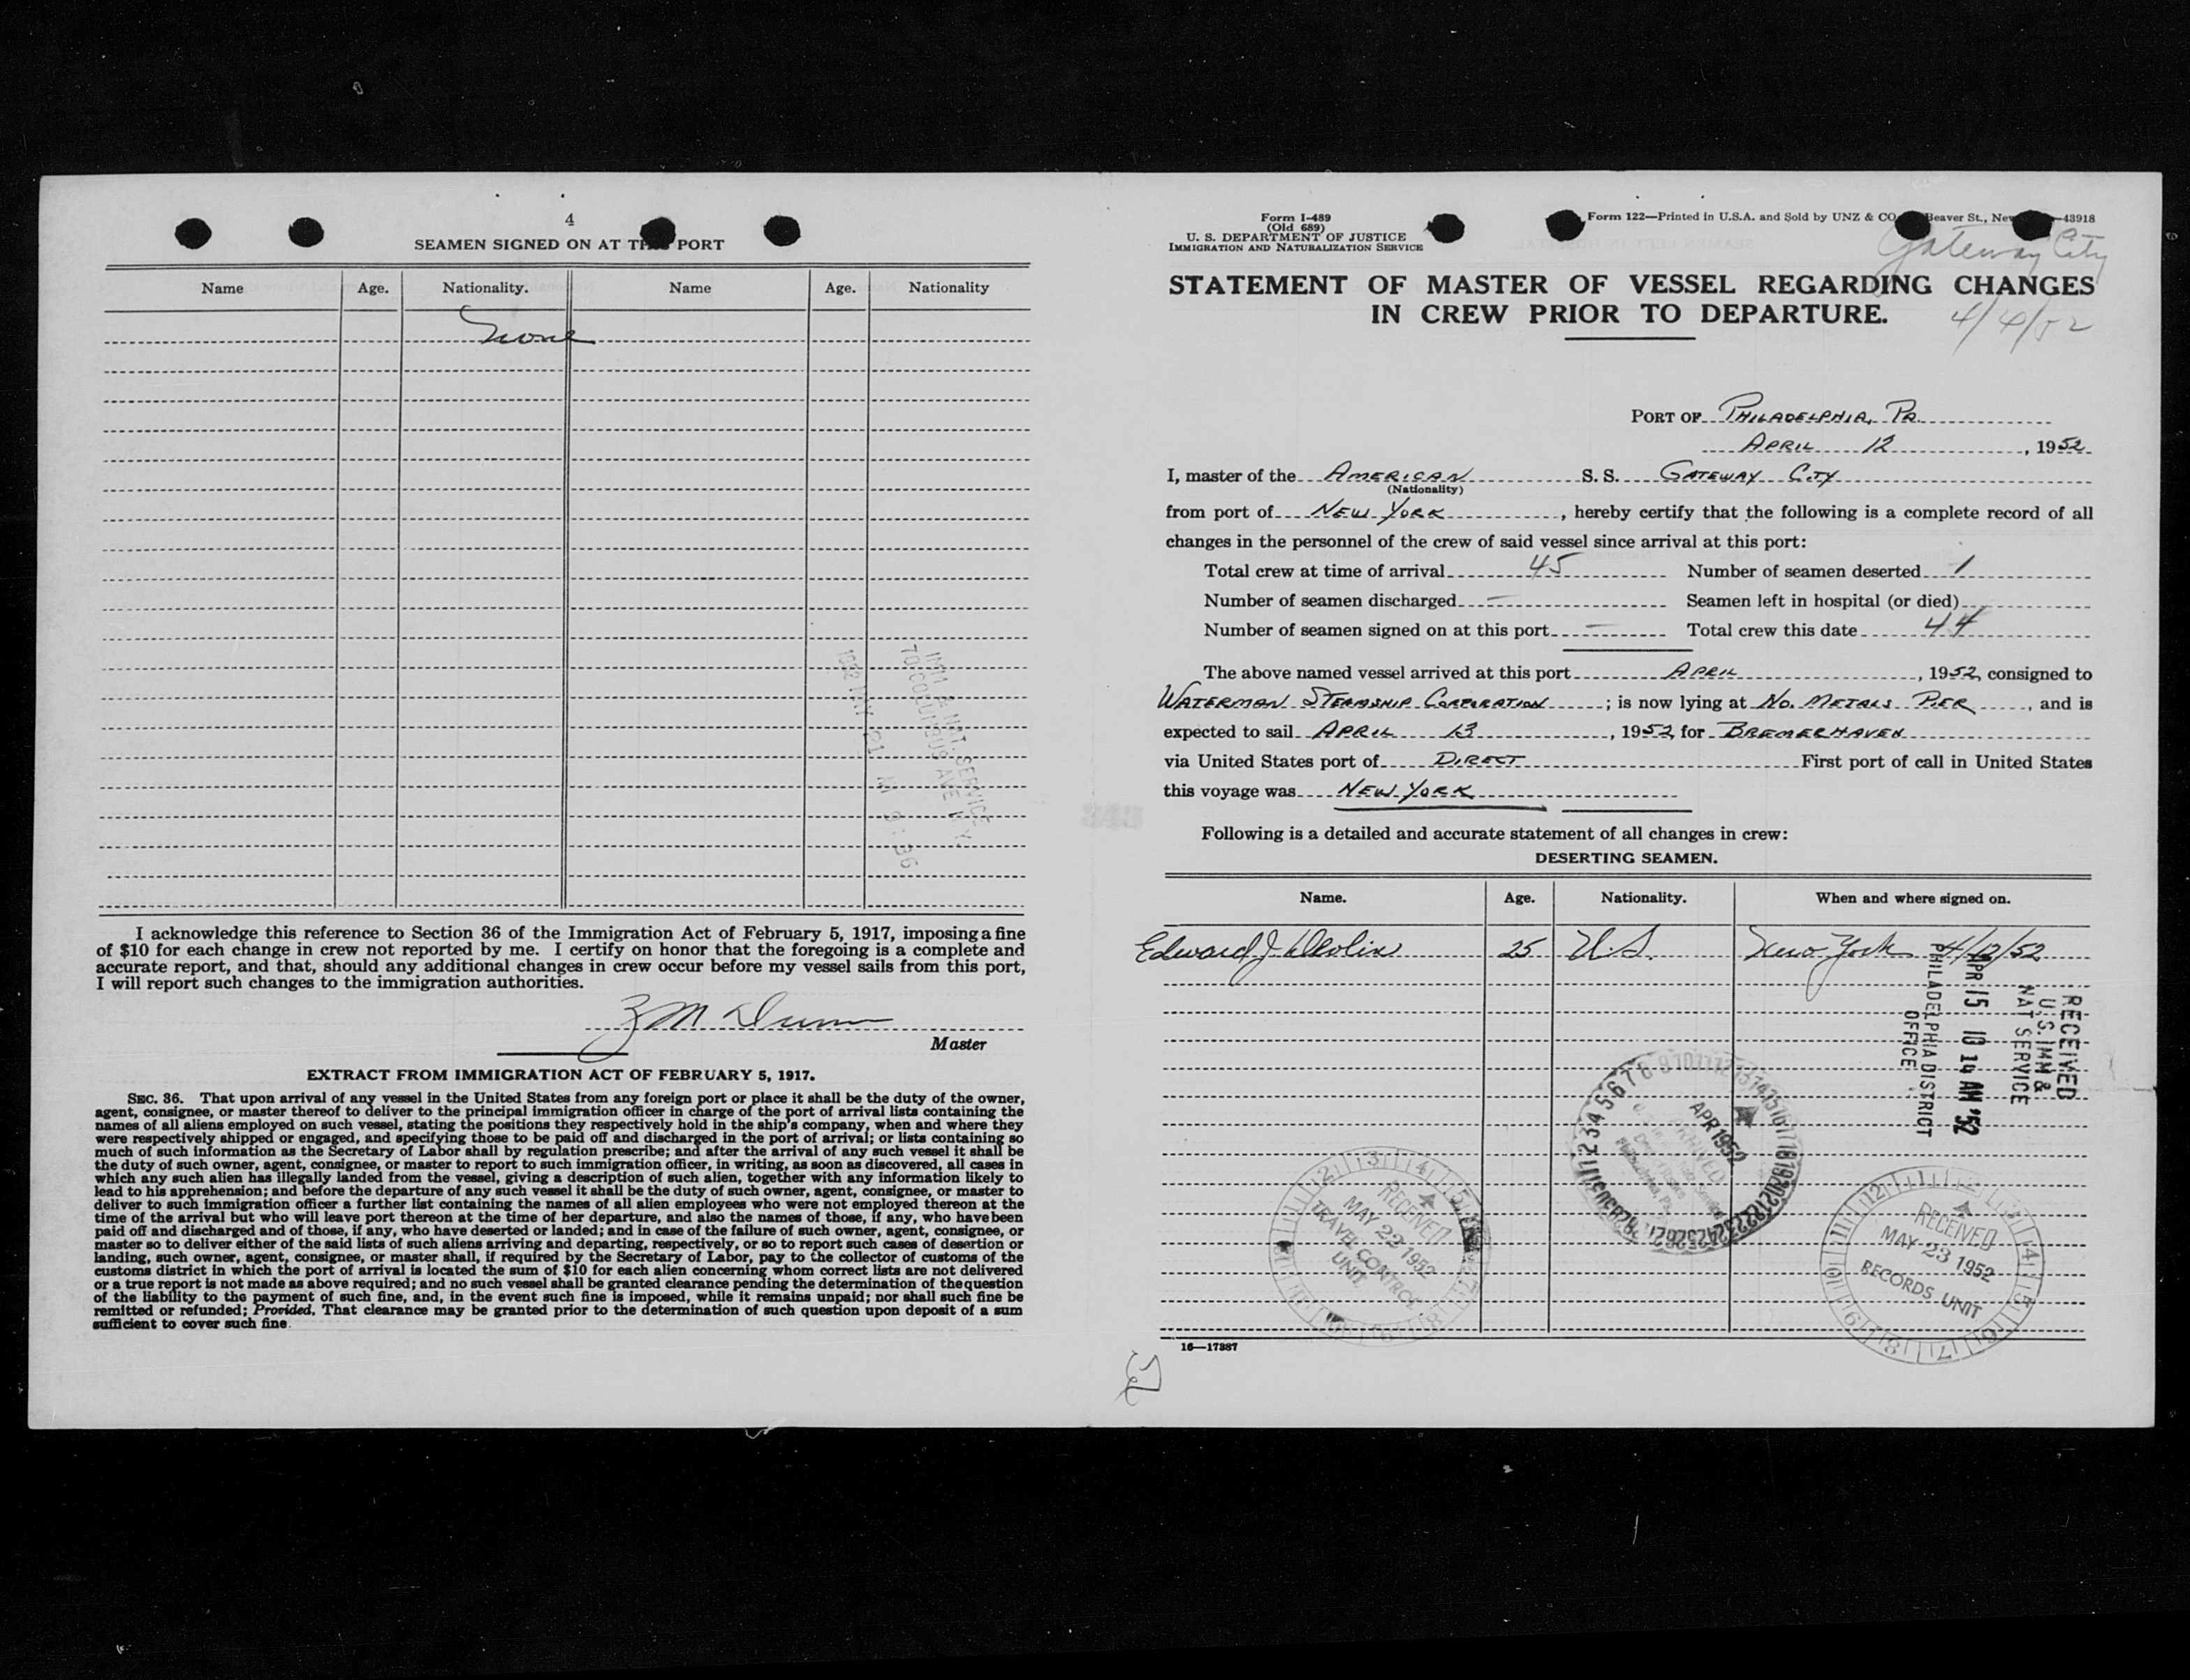 4
SEAMEN SIGNED ON AT THIS PORT
Name Age. Nationality. Name Age. Nationality
None
IMM & NAT. SERVICE
70 COLUMBUS AVE N Y
1952 MAY 21 AM 9:36
I acknowledge this reference to Section 36 of the Immigration Act of February 5, 1917, imposing a fine
of $10 for each change in crew not reported by me. I certify on honor that the foregoing is a complete and
accurate report, and that, should any additional changes in crew occur before my vessel sails from this port,
I will report such changes to the immigration authorities.
Master
EXTRACT FROM IMMIGRATION ACT OF FEBRUARY 5, 1917.
SEC. 36. That upon arrival of any vessel in the United States from any foreign port or place it shall be the duty of the owner,
agent, consignee, or master thereof to deliver to the principal immigration officer in charge of the port of arrival lists containing the
names of all aliens employed on such vessel, stating the positions they respectively hold in the ship's company, when and where they
were respectively shipped or engaged, and specifying those to be paid off and discharged in the port of arrival; or lists containing so
much of such information as the Secretary of Labor shall by regulation prescribe; and after the arrival of any such vessel it shall be
the duty of such owner, agent, consignee, or master to report to such immigration officer, in writing, as soon as discovered, all cases in
which any such alien has illegally landed from the vessel, giving a description of such alien, together with any information likely to
lead to his apprehension; and before the departure of any such vessel it shall be the duty of such owner, agent, consignee, or master to
deliver to such immigration officer a further list containing the names of all alien employees who were not employed thereon at the
time of the arrival but who will leave port thereon at the time of her departure, and also the names of those, if any, who have been
paid off and discharged and of those, if any, who have deserted or landed; and in case of the failure of such owner, agent, consignee, or
master so to deliver either of the said lists of such aliens arriving and departing, respectively, or so to report such cases of desertion or
landing, such owner, agent, consignee, or master shall, if required by the Secretary of Labor, pay to the collector of customs of the
customs district in which the port of arrival is located the sum of $10 for each alien concerning whom correct lists are not delivered
or a true report is not made as above required; and no such vessel shall be granted clearance pending the determination of the question
of the liability to the payment of such fine, and, in the event such fine is imposed, while it remains unpaid; nor shall such fine be
remitted or refunded; Provided, That clearance may be granted prior to the determination of such question upon deposit of a sum
sufficient to cover such fine.
Form I-489
(Old 689)
U. S. DEPARTMENT OF JUSTICE
IMMIGRATION AND NATURALIZATION SERVICE
Form 122—Printed in U.S.A. and Sold by UNZ & CO. Beaver St., New —43918
Gateway City
STATEMENT OF MASTER OF VESSEL REGARDING CHANGES
IN CREW PRIOR TO DEPARTURE.
4/4/52
PORT OF PHILADELPHIA, PA.
APRIL 12, 1952
I, master of the AMERICAN S. S. GATEWAY CITY
(Nationality)
from port of NEW YORK, hereby certify that the following is a complete record of all
changes in the personnel of the crew of said vessel since arrival at this port:
Total crew at time of arrival 45 Number of seamen deserted 1
Number of seamen discharged — Seamen left in hospital (or died)
Number of seamen signed on at this port — Total crew this date 44
The above named vessel arrived at this port APRIL, 1952, consigned to
WATERMAN STEAMSHIP CORPORATION; is now lying at NO. METALS PIER, and is
expected to sail APRIL 13, 1952, for BREMERHAVEN
via United States port of DIRECT First port of call in United States
this voyage was NEW YORK
Following is a detailed and accurate statement of all changes in crew:
DESERTING SEAMEN.
Name. Age. Nationality. When and where signed on.
Edward J. Devlin 25 U.S. New York 4/12/52
RECEIVED
U.S. IMM &
NAT SERVICE
APR 15 10 14 AM '52
PHILADELPHIA DISTRICT
OFFICE
APR 1952
ARRIVED
Philadelphia, Pa.
RECEIVED
MAY 22 1952
TRAVEL CONTROL
UNIT
RECEIVED
MAY 23 1952
RECORDS UNIT
16—17387
52